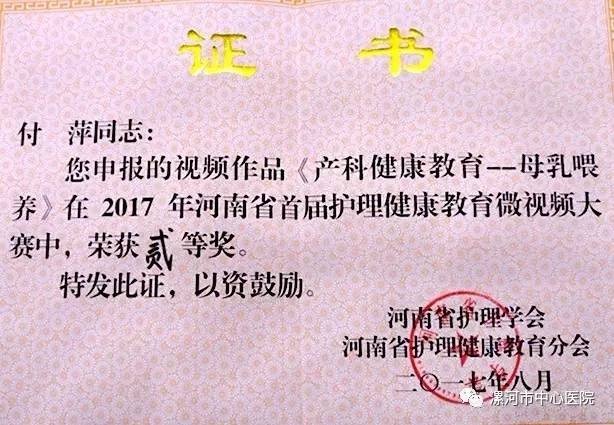 证 书
付 萍同志：
您申报的视频作品《产科健康教育--母乳喂
养》在 2017 年河南省首届护理健康教育微视频大
赛中，荣获贰等奖。
特发此证，以资鼓励。
河南省护理学会
河南省护理健康教育分会
二〇一七年八月
漯河市中心医院